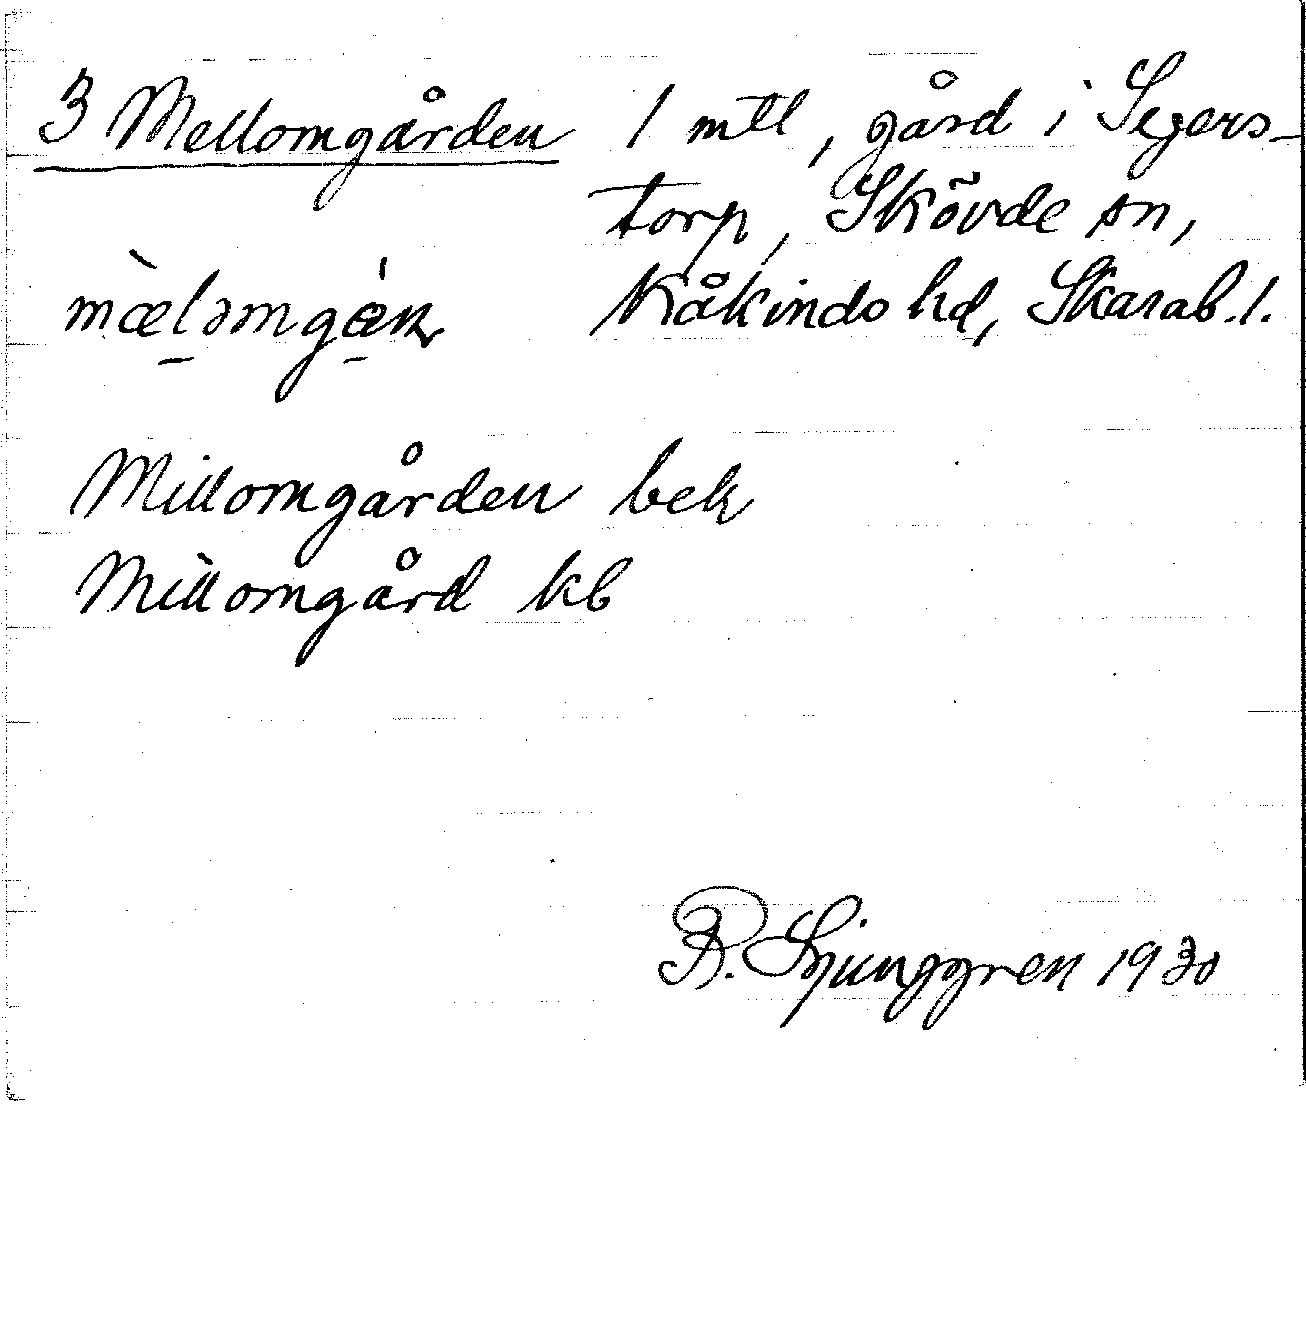 3 Mellomgården 1 mtl, gård i Segers-
torp, Skövde sn,
mæləmgån Kåkinds hd, Skarab. l.
Millomgården bek
Millomgård kb
R. Ljunggren 1930